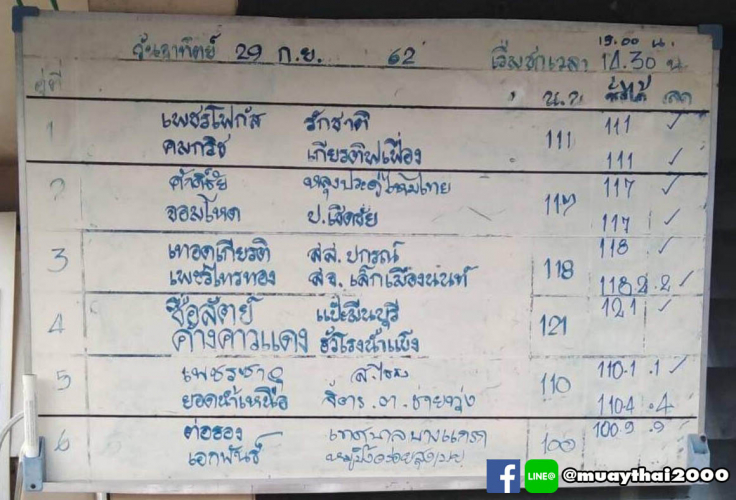 วันอาทิตย์ 29 ก.ย. 62 เริ่มชกเวลา 14.30 น.
15.00 น.
คู่ที่ น.น. ชั่งได้ ลด
1 เพชรโฟกัส รักชาติ 111 111 ✓
คมกริช เกียรติฟูเฟื่อง 111 ✓
2 ศักดิ์ชัย หลุงประตูไทย 117 117 ✓
จอมโหด ป.เชิดชัย 117 ✓
3 เทอดเกียรติ สส.ปกรณ์ 118 118 ✓
เพชรไทรทอง สจ.เล็กเมืองนนท์ 118.2 .2 ✓
4 ซื่อสัตย์ แป๊ะมีนบุรี 121 121 ✓
ค้างคาวแดง รั้วโรงน้ำแข็ง
5 110 110.1 .1 ✓
ยอดน้ำเหนือ 110.4 .4
6 ต่อรอง 100 100.9 .9 ✓
เอกพันธ์
f LINE@ @muaythai2000